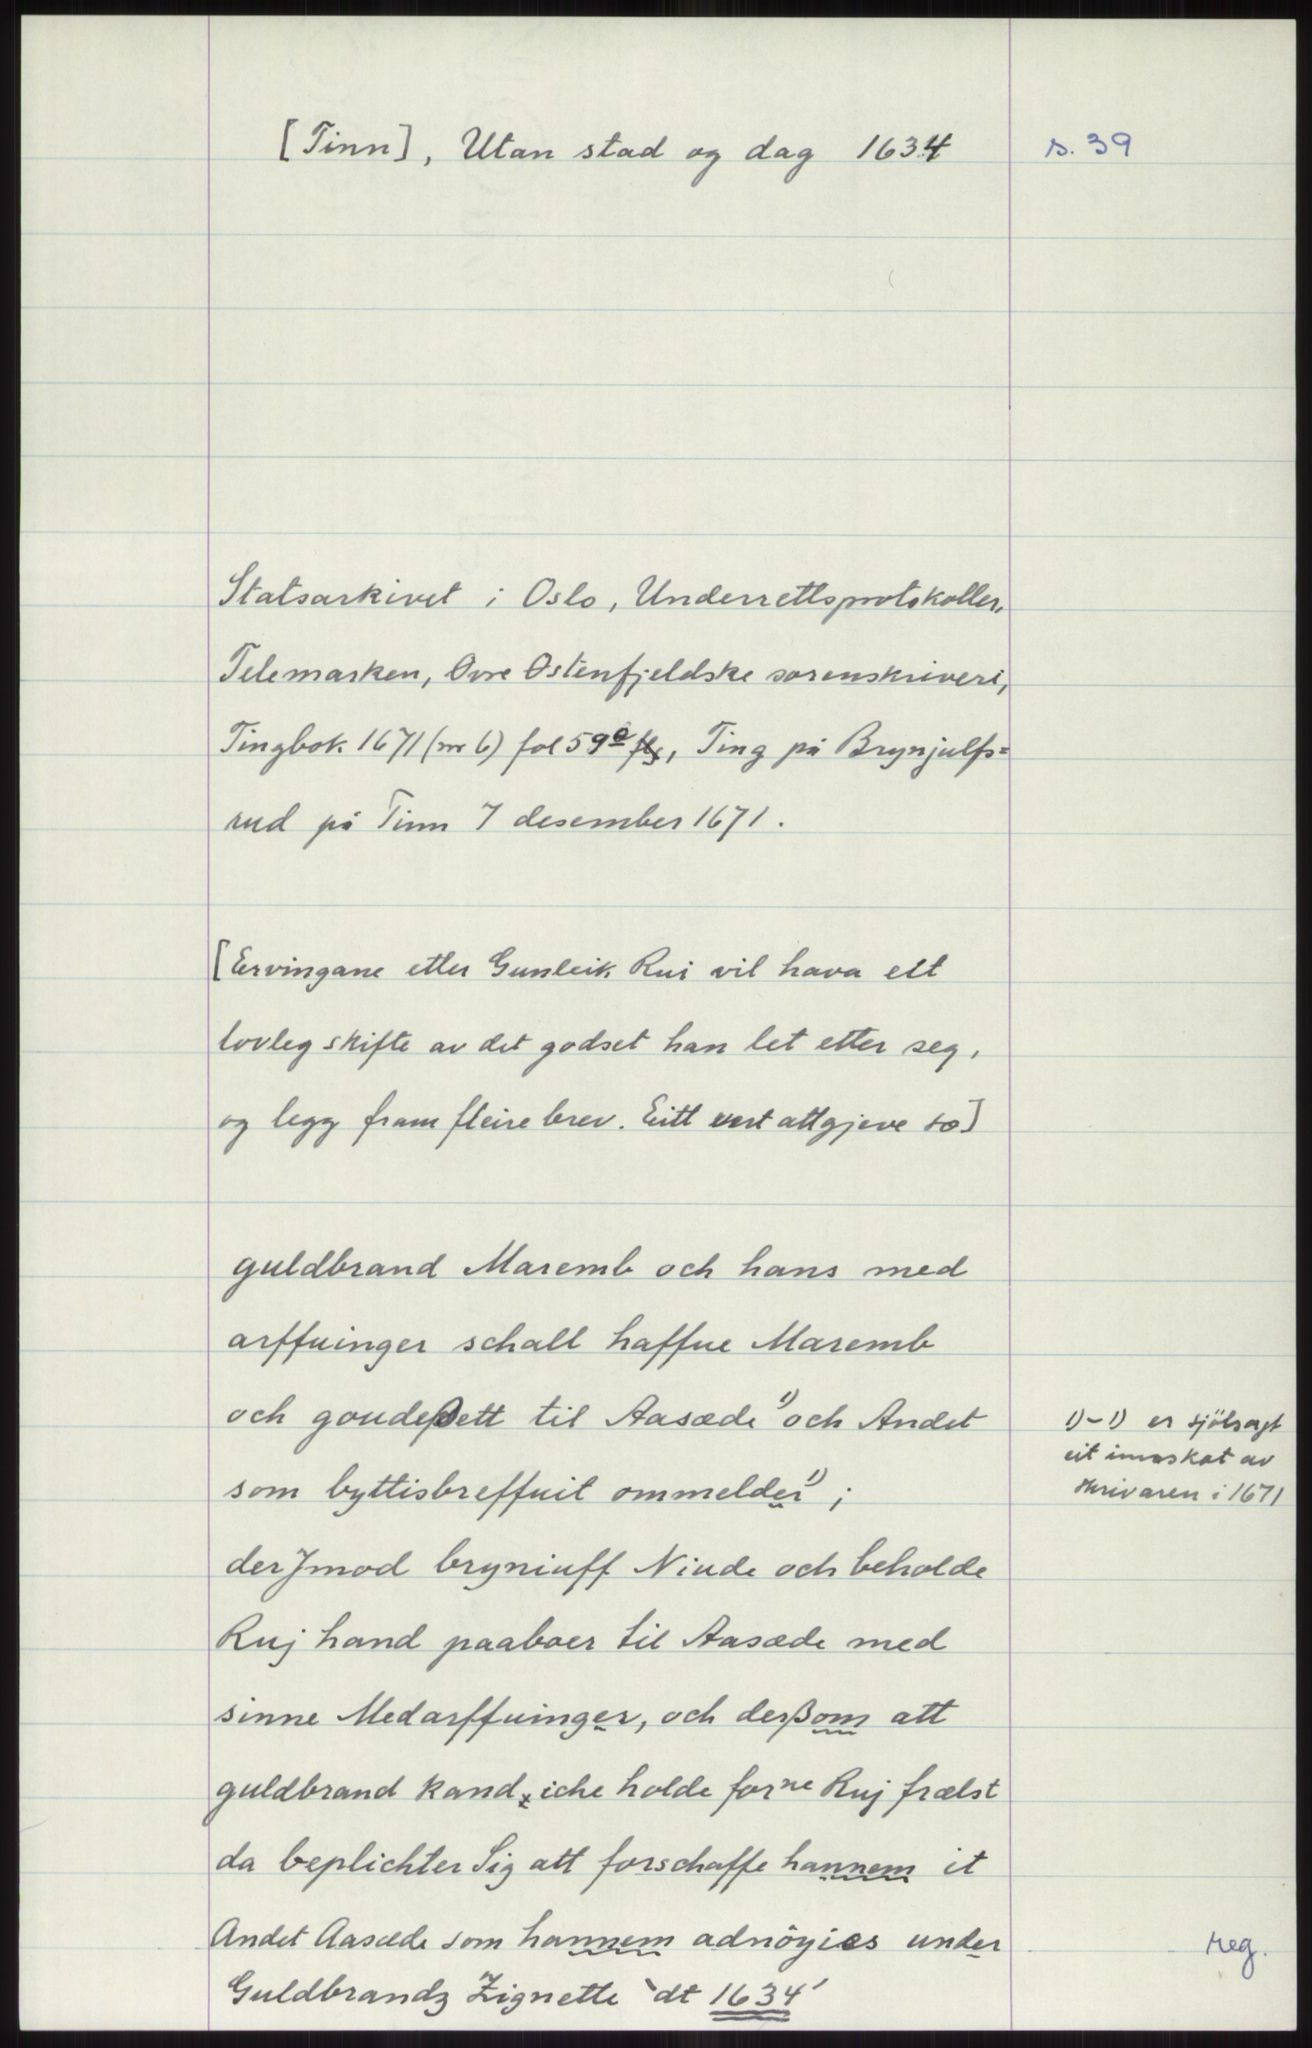 [Tinn], Utan stad og dag 1634
s. 39
Statsarkivet i Oslo, Underrettsprotokoller,
Telemarken, Øvre Østenfjeldske sorenskriveri,
Tingbok 1671 (nr 6) fol 59a, Ting på Brynjulfs=
rud på Tinn 7 desember 1671.
[Ervingane etter Gunleik Rui vil hava eit
lovleg skifte av det godset han let etter seg,
og legg fram fleire brev. Eitt vert attgjeve so]
guldbrand Maremb och hans med
arffuinger schall haffue Maremb
och goudeßett til Aasæde 1) och Andet
som byttisbreffuit ommelder 1);
derJmod bryniuff Niude och beholde
Ruj hand paaboer til Aasæde med
sinne Medarffuinger, och derßom att
guldbrand kand iche holde forne Ruj frælst
da beplichter Sig att forschaffe hannem it
Andet Aasæde som hannem adnöyies under
Guldbrandz Zignette dt 1634
1)-1) er sjölsagt
eit innskot av
skrivaren i 1671
reg.